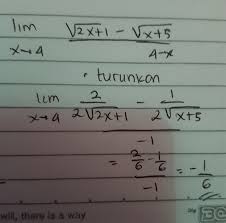 lim √2x+1 - √x+5
x→4 4-x
• turunkan
lim 2/2√2x+1 - 1/2√x+5
x→4 -1
= 2/6 - 1/6 = -1/6
-1
will, there is a way